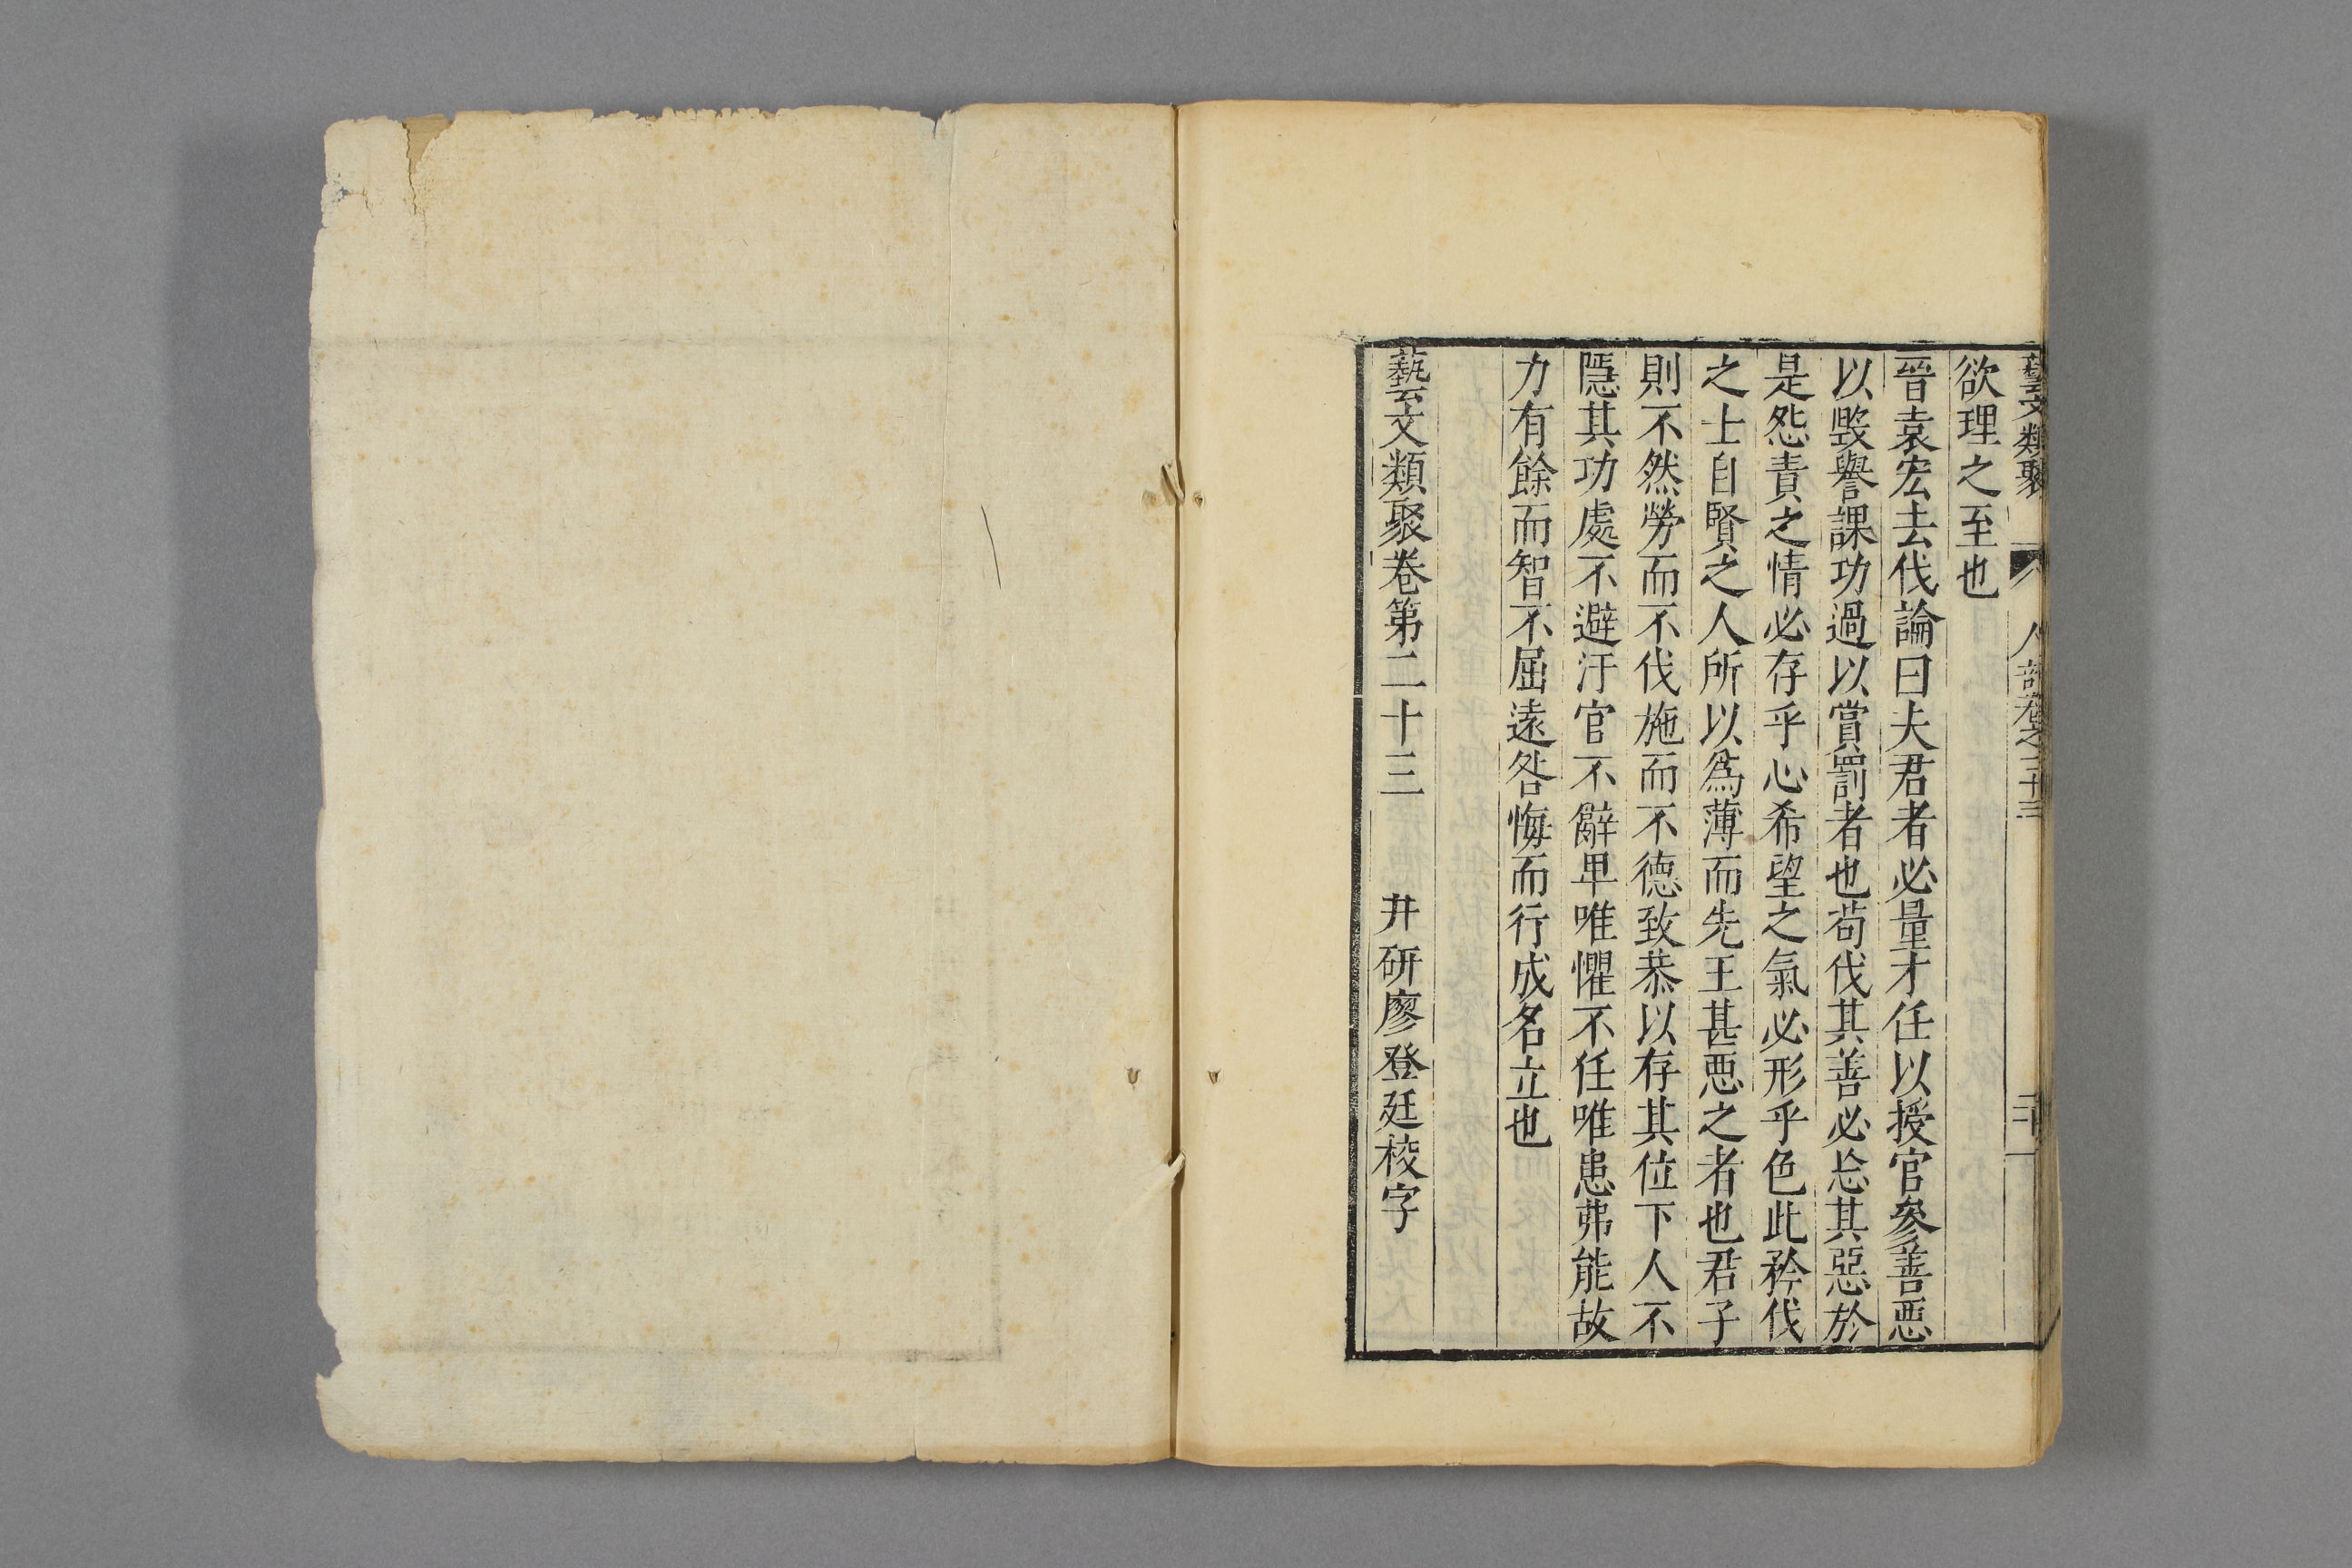 藝文類聚 人部卷之二十三 二十
欲理之至也
晉袁宏去伐論曰夫君者必量才任以授官參善惡
以毀譽課功過以賞罰者也苟伐其善必忘其惡於
是怨責之情必存乎心希望之氣必形乎色此矜伐
之士自賢之人所以爲薄而先王甚惡之者也君子
則不然勞而不伐施而不德致恭以存其位下人不
隱其功處不避汙官不辭卑唯懼不任唯患弗能故
力有餘而智不屈遠咎悔而行成名立也
藝文類聚卷第二十三 井研廖登廷校字